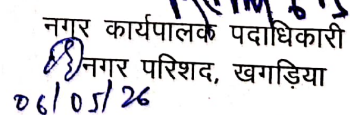 नगर कार्यपालक पदाधिकारी
नगर परिशद, खगड़िया
06/05/26